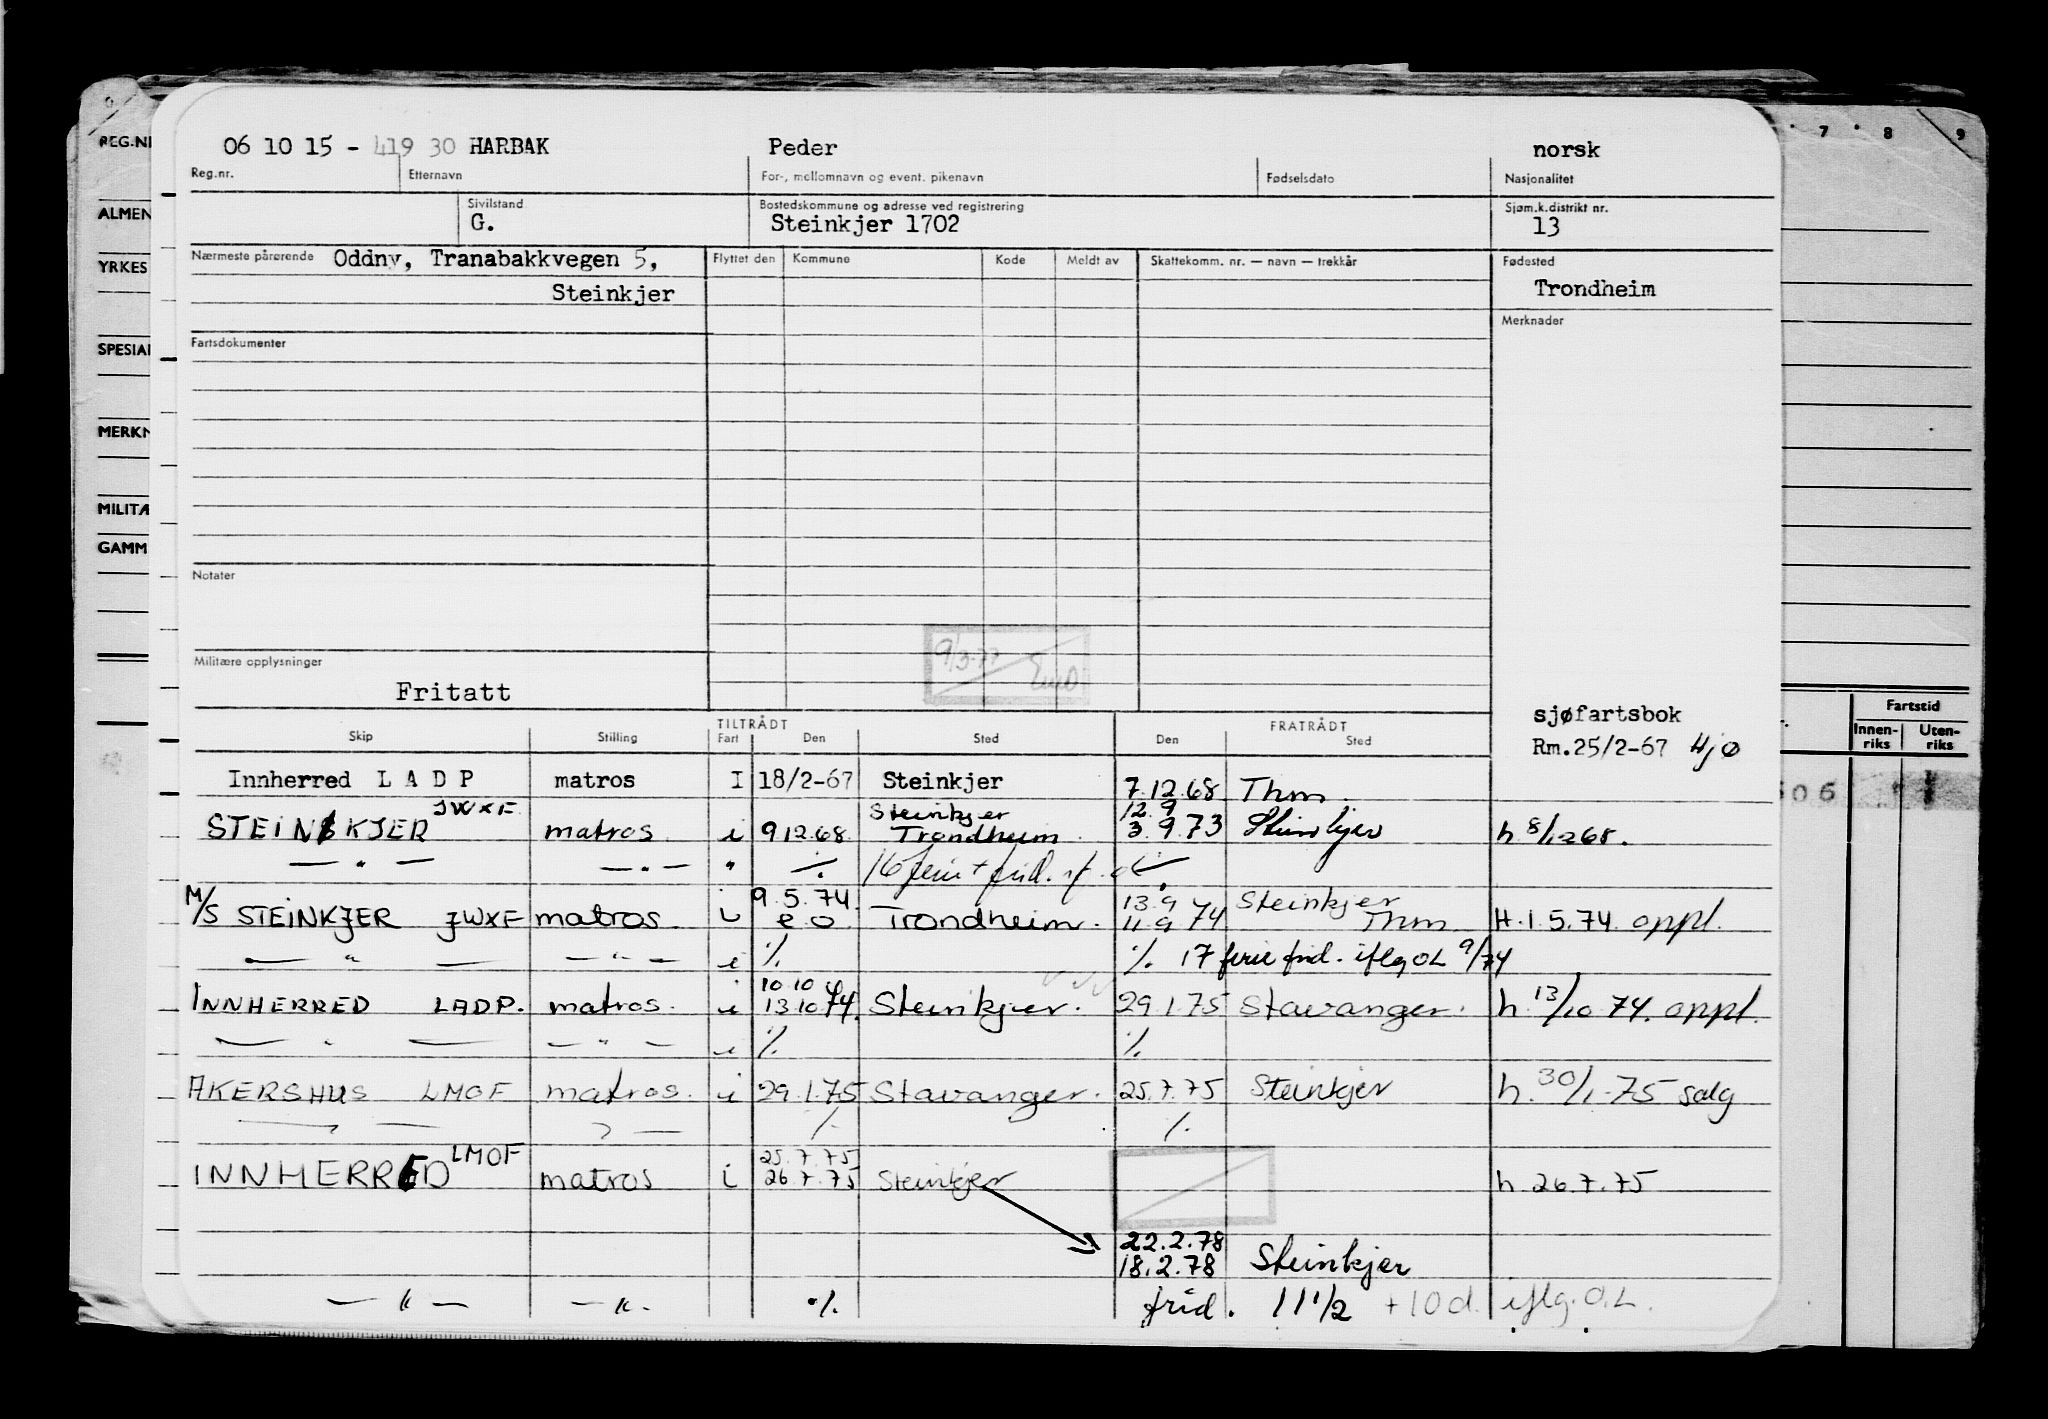 06 10 15 - 419 30 HARBAK Peder norsk
Reg.nr. Etternavn For-, mellomnavn og event. pikenavn Fødselsdato Nasjonalitet
Sivilstand Bostedskommune og adresse ved registrering Sjøm.k.distrikt nr.
G. Steinkjer 1702 13
Nærmeste pårørende Oddny, Tranabakkvegen 5, Flyttet den Kommune Kode Meldt av Skattekomm. nr. — navn — trekkår Fødested
Steinkjer Trondheim
Merknader
Fartsdokumenter
Notater
9/3-77
Militære opplysninger
Fritatt
sjøfartsbok
Rm.25/2-67 Hjø
TILTRÅDT FRATRÅDT
Skip Stilling Fart Den Sted Den Sted
Innherred L A D P matros I 18/2-67 Steinkjer 7.12.68 Thm.
JWXF Steinkjer 12.9
STEINKJER matros i 9.12.68. Trondheim. 3.9.73 Steinkjer h 8/12 68.
— " — — " — " ·/. 16 ferie + frid.
9.5.74. 13.9 Steinkjer
M/S STEINKJER JWXF matros i e.o. Trondheim. 11.9 74 Thm H.1.5.74. oppl.
— " — — " — i ·/. ·/. 17 ferie frid. iflg OL 9/74
10.10
INNHERRED LADP. matros. i 13.10.74. Steinkjer. 29.1.75 Stavanger. h. 13/10 74. oppl.
— " — — " — i ·/. ·/.
AKERSHUS LMOF matros. i 29.1.75 Stavanger. 25.7.75 Steinkjer h. 30/1-75 salg
— " — — " — ·/. ·/.
LMOF 25.7.75
INNHERRED matros i 26.7.75 Steinkjer h 26.7.75
22.2.78
18.2.78 Steinkjer
— " — — " — ·/. frid. 11 1/2 + 10 d. iflg. O.L.
REG.N
ALMEN
YRKES
SPESIAL
MERKN
MILITÆ
GAMM
7 8 9
Fartstid
Innen-riks Uten-riks
606